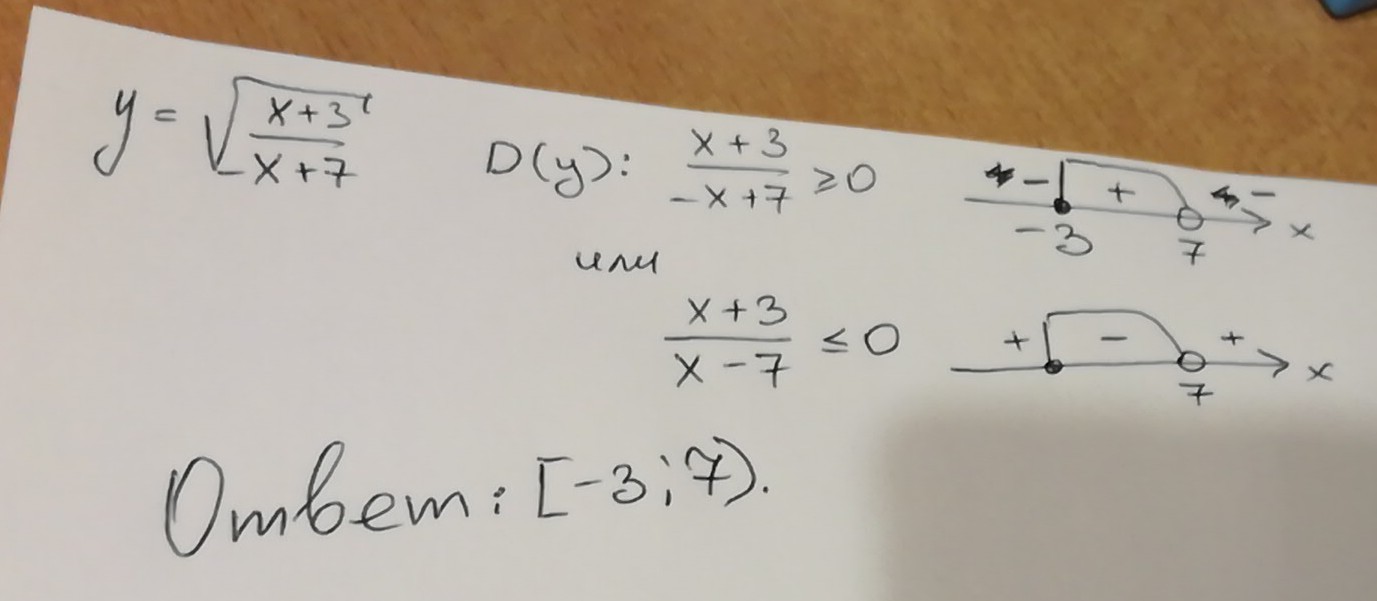 y = √((x+3)/(-x+7)) D(y): (x+3)/(-x+7) ≥ 0 - + - -3 7 x
или
(x+3)/(x-7) ≤ 0 + - + 7 x
Ответ: [-3; 7).